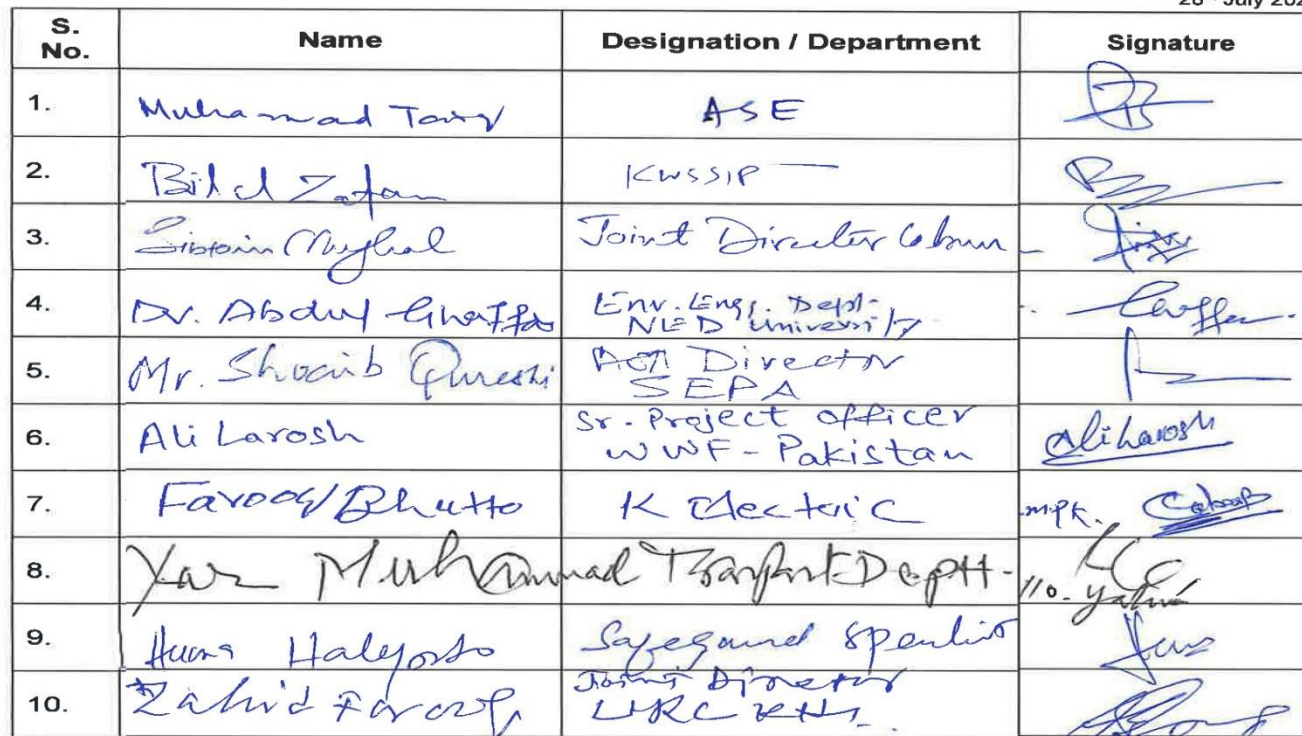 28 July 202
S. No. Name Designation / Department Signature
1. Muhammad Tariq ASE
2. Bilal Zafar KWSSIP
3. Mughal Joint Director Labour
4. Dr. Abdul Ghaffar Env. Eng. Dept.
NED University
5. Mr. Shoaib Qureshi Director
SEPA
6. Ali Larosh Sr. Project Officer
WWF - Pakistan Ali Larosh
7. Farooq Bhutto K Electric MPK.
8. Yar Muhammad Transport Deptt.
9. Huma Safeguard Specialist
10. Zahid Farooq Joint Director
URC KHI.